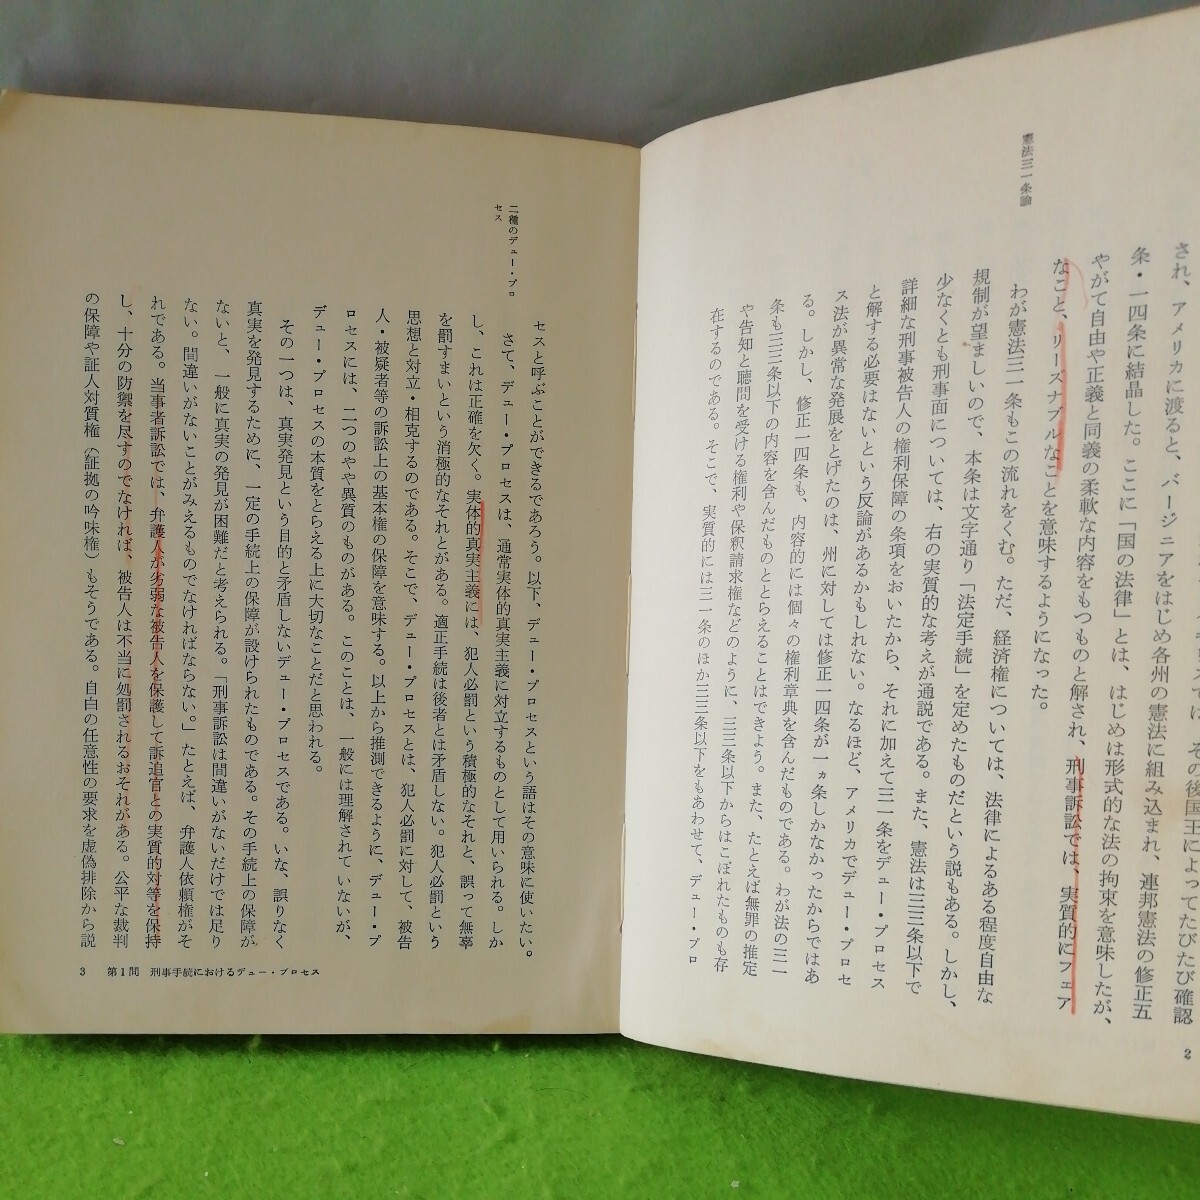 憲法三一条論
その後国王によってたびたび確認
され、アメリカに渡ると、バージニアをはじめ各州の憲法に組み込まれ、連邦憲法の修正五
条・一四条に結晶した。ここに「国の法律」とは、はじめは形式的な法の拘束を意味したが、
やがて自由や正義と同義の柔軟な内容をもつものと解され、刑事訴訟では、実質的にフェア
なこと、リーズナブルなことを意味するようになった。
わが憲法三一条もこの流れをくむ。ただ、経済権については、法律によるある程度自由な
規制が望ましいので、本条は文字通り「法定手続」を定めたものだという説もある。しかし、
少なくとも刑事面については、右の実質的な考えが通説である。また、憲法は三三条以下で
詳細な刑事被告人の権利保障の条項をおいたから、それに加えて三一条をデュー・プロセス
と解する必要はないという反論があるかもしれない。なるほど、アメリカでデュー・プロセ
ス法が異常な発展をとげたのは、州に対しては修正一四条が一ヵ条しかなかったからではあ
る。しかし、修正一四条も、内容的には個々の権利章典を含んだものである。わが法の三一
条も三三条以下の内容を含んだものととらえることはできよう。また、たとえば無罪の推定
や告知と聴問を受ける権利や保釈請求権などのように、三三条以下からはこぼれたものも存
在するのである。そこで、実質的には三一条のほか三三条以下をもあわせて、デュー・プロ
2
セスと呼ぶことができるであろう。以下、デュー・プロセスという語はその意味に使いたい。
二種のデュー・プロ
セス
さて、デュー・プロセスは、通常実体的真実主義に対立するものとして用いられる。しか
し、これは正確を欠く。実体的真実主義には、犯人必罰という積極的なそれと、誤って無辜
を罰すまいという消極的なそれとがある。適正手続は後者とは矛盾しない。犯人必罰という
思想と対立・相克するのである。そこで、デュー・プロセスとは、犯人必罰に対して、被告
人・被疑者等の訴訟上の基本権の保障を意味する。以上から推測できるように、デュー・プ
ロセスには、二つのやや異質のものがある。このことは、一般には理解されていないが、
デュー・プロセスの本質をとらえる上に大切なことだと思われる。
その一つは、真実発見という目的と矛盾しないデュー・プロセスである。いな、誤りなく
真実を発見するために、一定の手続上の保障が設けられたものである。その手続上の保障が
ないと、一般に真実の発見が困難だと考えられる。「刑事訴訟は間違いがないだけでは足り
ない。間違いがないことがみえるものでなければならない。」たとえば、弁護人依頼権がそ
れである。当事者訴訟では、弁護人が劣弱な被告人を保護して訴追官との実質的対等を保持
し、十分の防禦を尽すのでなければ、被告人は不当に処罰されるおそれがある。公平な裁判
の保障や証人対質権（証拠の吟味権）もそうである。自白の任意性の要求を虚偽排除から説
3　第1問　刑事手続におけるデュー・プロセス